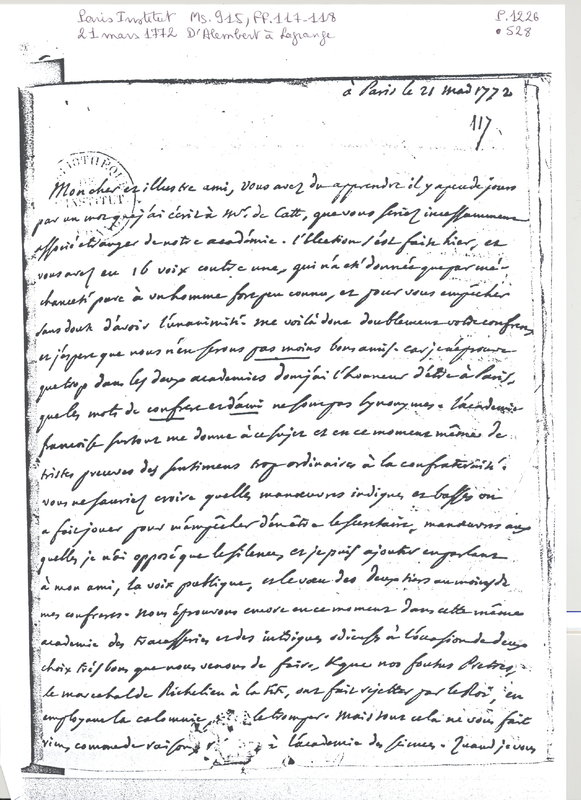 Paris Institut Ms. 915, FF. 117-118 P. 1226
21 mars 1772 D'Alembert à Lagrange • 528
à Paris le 21 mars 1772
117
Mon cher et illustre ami, vous avez du apprendre il y a peu de jours
par un mot que j'ai écrit à Mr. de Catt, que vous seriez incessamment
associé etranger de notre académie. l'Election s'est faite hier, et
vous avez eu 16 voix contre une, qui n'a eté donnée que par mé-
chanceté parc à un homme fort peu connu, et pour vous empêcher
sans doute d'avoir l'unanimité. me voilà donc doublement votre confrere
et j'espere que nous n'en serons pas moins bons amis. car je n'éprouve
que trop dans les deux academies dont j'ai l'honneur d'être à Paris,
que les mots de confrere et d'ami ne sont pas synonymes. l'academie
françoise surtout me donne à ce sujet et en ce moment même de
tristes preuves des sentimens trop ordinaires à la confraternité.
vous ne sauriez croire quelles manœuvres indignes et basses on
a fait jouer pour m'empêcher d'en être le secretaire, manœuvres aux
quelles je n'ai opposé que le silence, et je puis ajouter en parlant
à mon ami, la voix publique, et le vœu des deux tiers au moins de
mes confreres. Nous éprouvons encore en ce moment dans cette même
academie des tracasseries et des intrigues odieuses à l'occasion de deux
choix très bons que nous venons de faire, & que nos foutus Pretres,
le marechal de Richelieu à la tête, ont fait rejetter par le Roi, en
employant la calomnie le tromper. Mais tout cela ne vous fait
rien, comme de raison à l'academie des sciences. Quand je vous